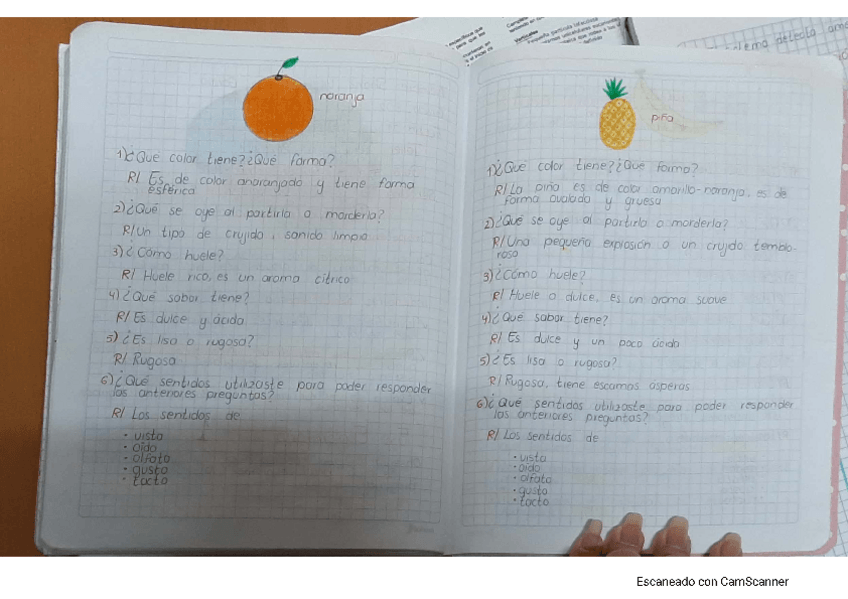 naranja
1)¿Qué color tiene?¿Qué forma?
R/ Es de color anaranjado y tiene forma
esférica
2)¿Qué se oye al partirla o morderla?
R/Un tipo de crujido, sonido limpio
3)¿Cómo huele?
R/ Huele rico, es un aroma cítrico
4)¿Qué sabor tiene?
R/ Es dulce y ácida
5)¿Es lisa o rugosa?
R/ Rugosa
6)¿Qué sentidos utilizaste para poder responder
las anteriores preguntas?
R/ Los sentidos de
• vista
• oído
• olfato
• gusto
• tacto
piña
1)¿Qué color tiene?¿Qué forma?
R/ La piña es de color amarillo-naranja, es de
forma ovalada y gruesa
2)¿Qué se oye al partirla o morderla?
R/Una pequeña explosión o un crujido temblo-
roso
3)¿Cómo huele?
R/ Huele a dulce, es un aroma suave
4)¿Qué sabor tiene?
R/ Es dulce y un poco ácida
5)¿Es lisa o rugosa?
R/ Rugosa, tiene escamas ásperas
6)¿Qué sentidos utilizaste para poder responder
las anteriores preguntas?
R/ Los sentidos de
• vista
• oído
• olfato
• gusto
• tacto
Escaneado con CamScanner